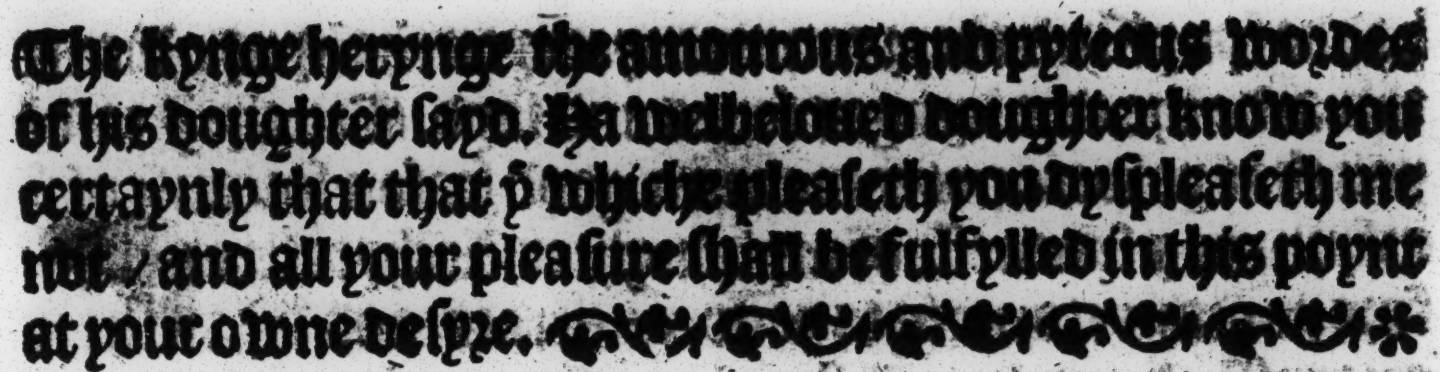 The kynge herynge the amourous and pyteous wordes
of his doughter ſayd. Ha welbeloued doughter know you
certaynly that that ẏ whiche pleaſeth you dyſpleaſeth me
not / and all your pleaſure ſhall be fulfylled in this poynt
at your owne deſyre.